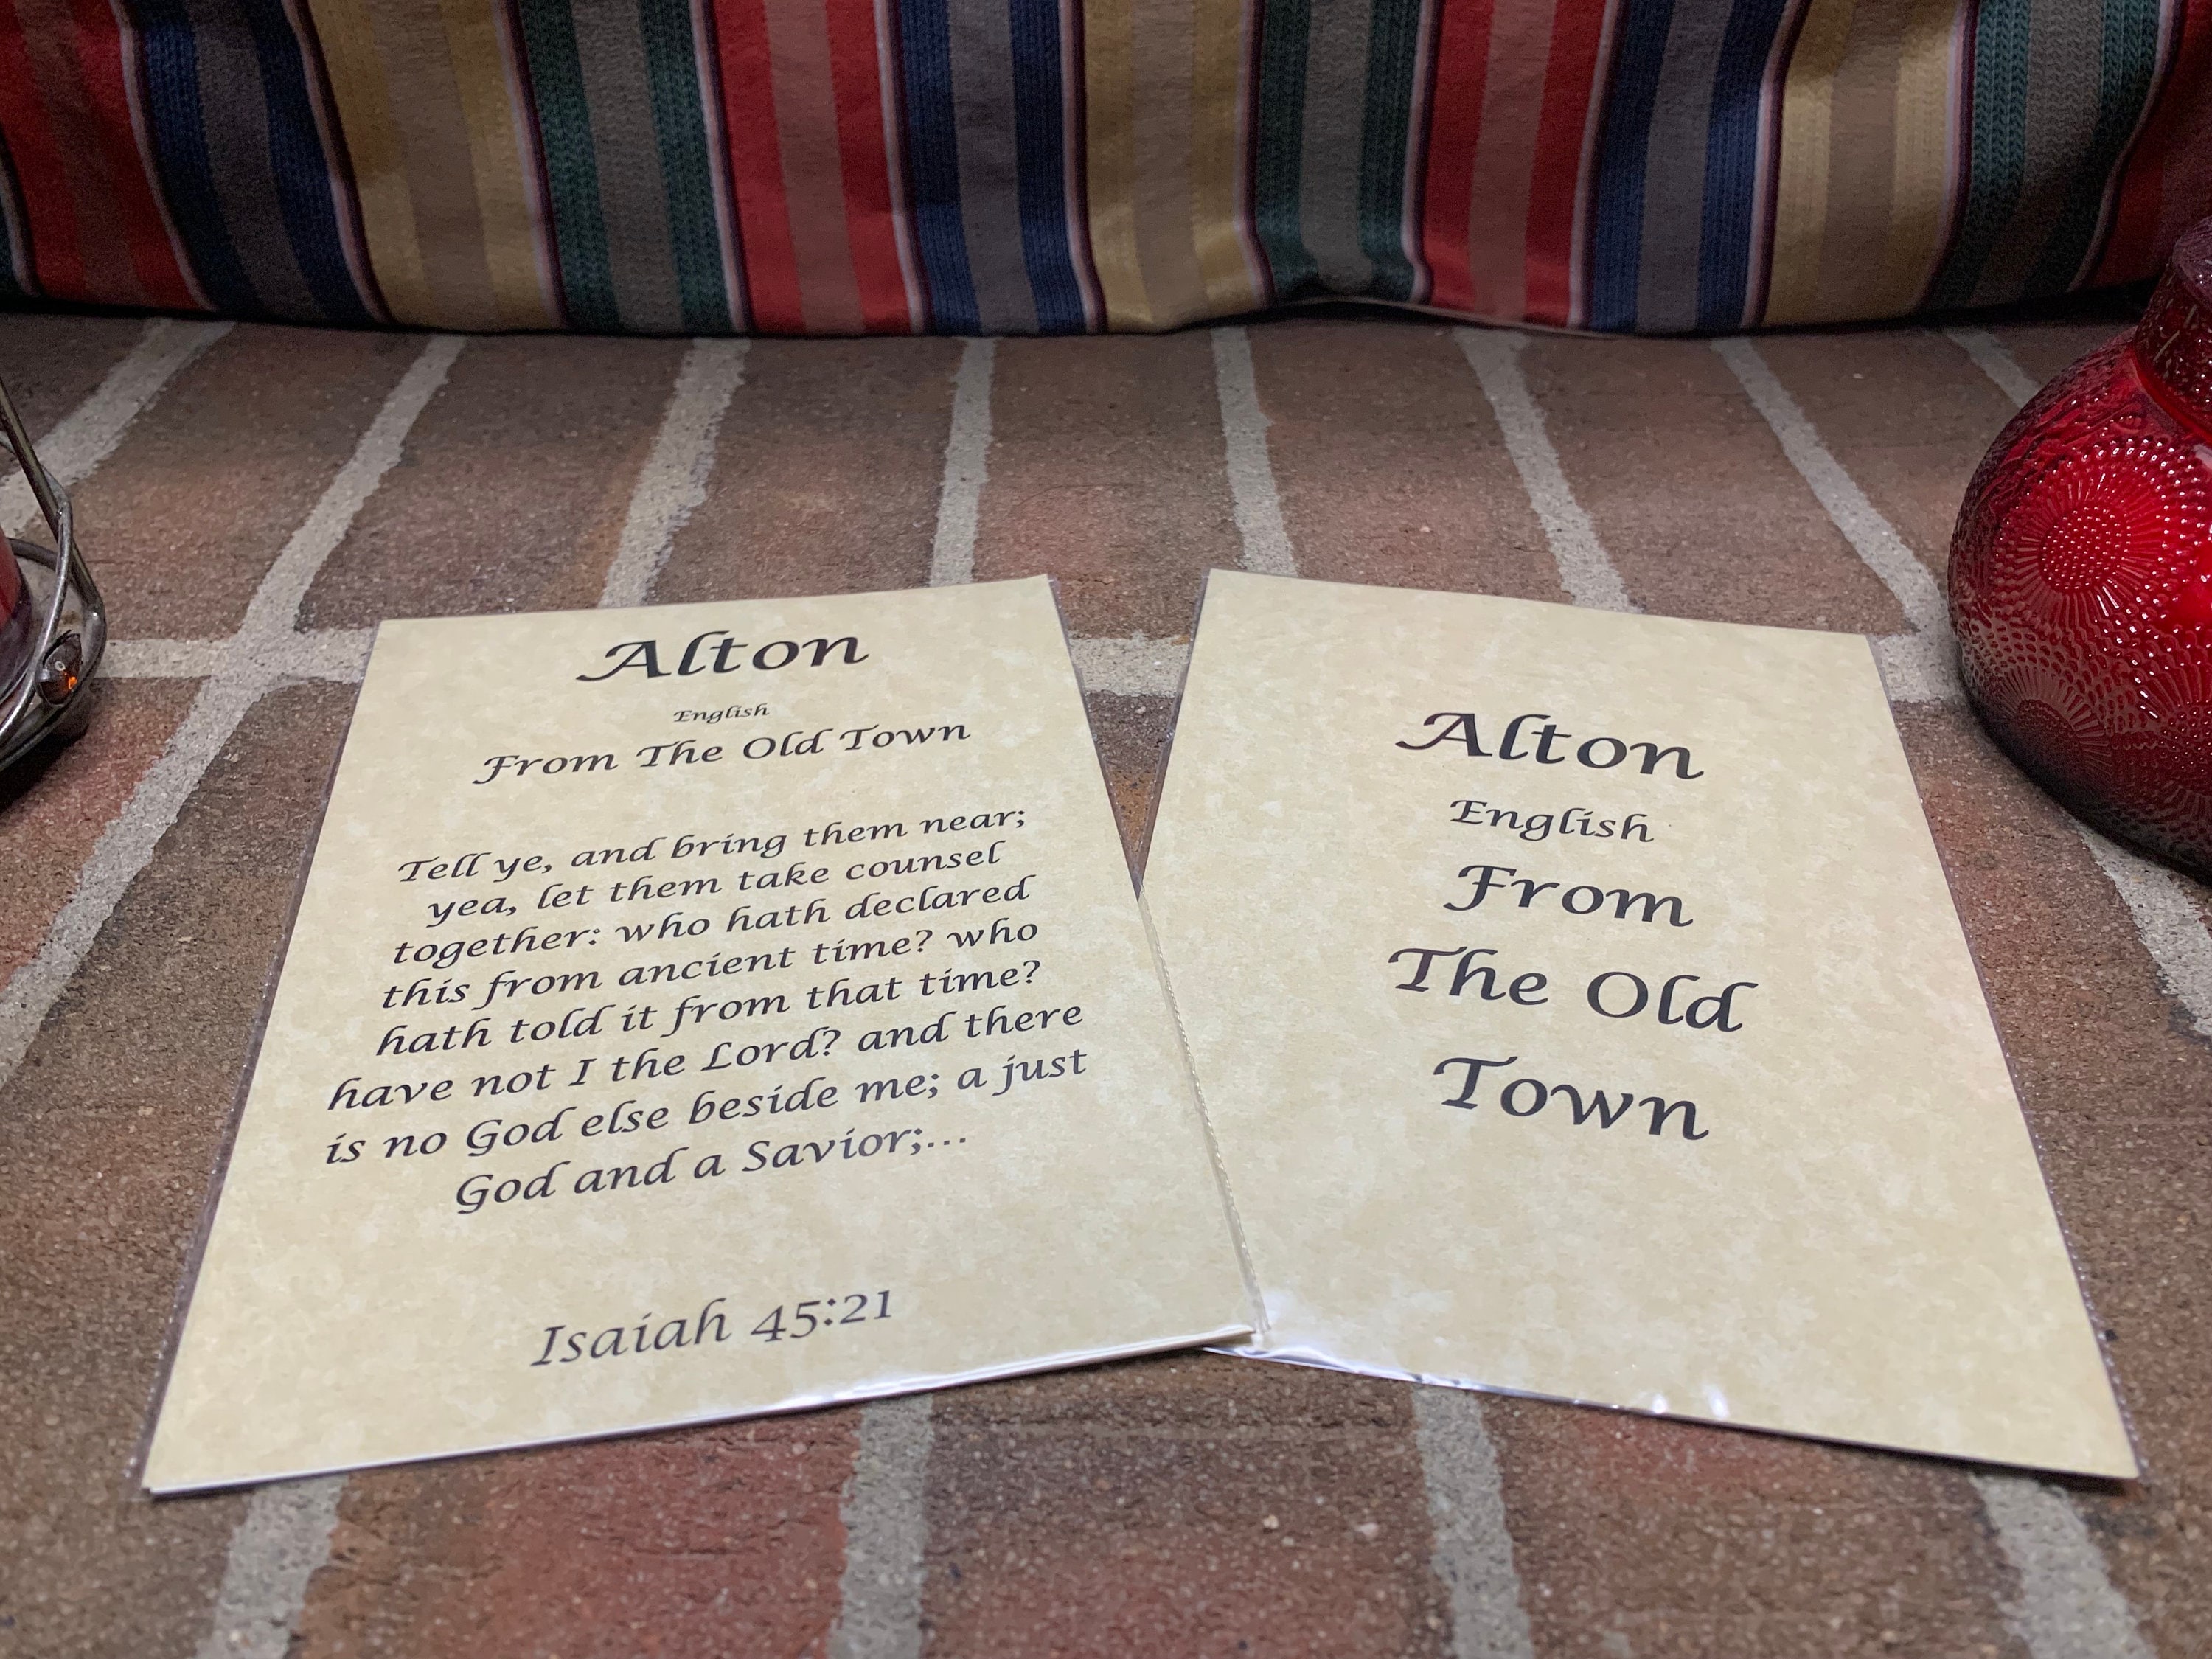 Alton
English
From The Old Town
Tell ye, and bring them near;
yea, let them take counsel
together: who hath declared
this from ancient time? who
hath told it from that time?
have not I the Lord? and there
is no God else beside me; a just
God and a Savior;...
Isaiah 45:21
Alton
English
From
The Old
Town